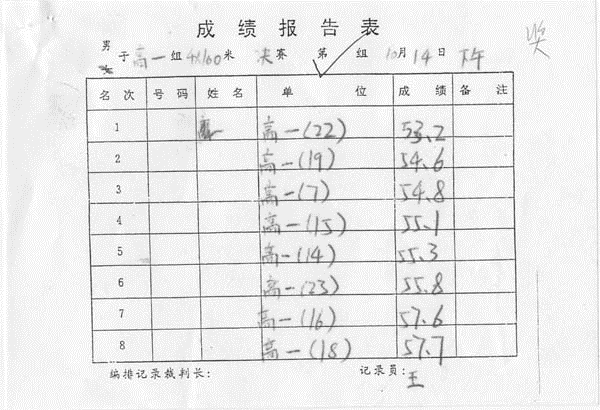 成绩报告表
奖
男
子高一组4X100米 决赛 第 组 10月14日 下午
名次 号码 姓名 单位 成绩 备注
1 高一(22) 53.2
2 高一(19) 54.6
3 高一(7) 54.8
4 高一(15) 55.1
5 高一(14) 55.3
6 高一(23) 55.8
7 高一(16) 57.6
8 高一(18) 57.7
编排记录裁判长: 记录员:王